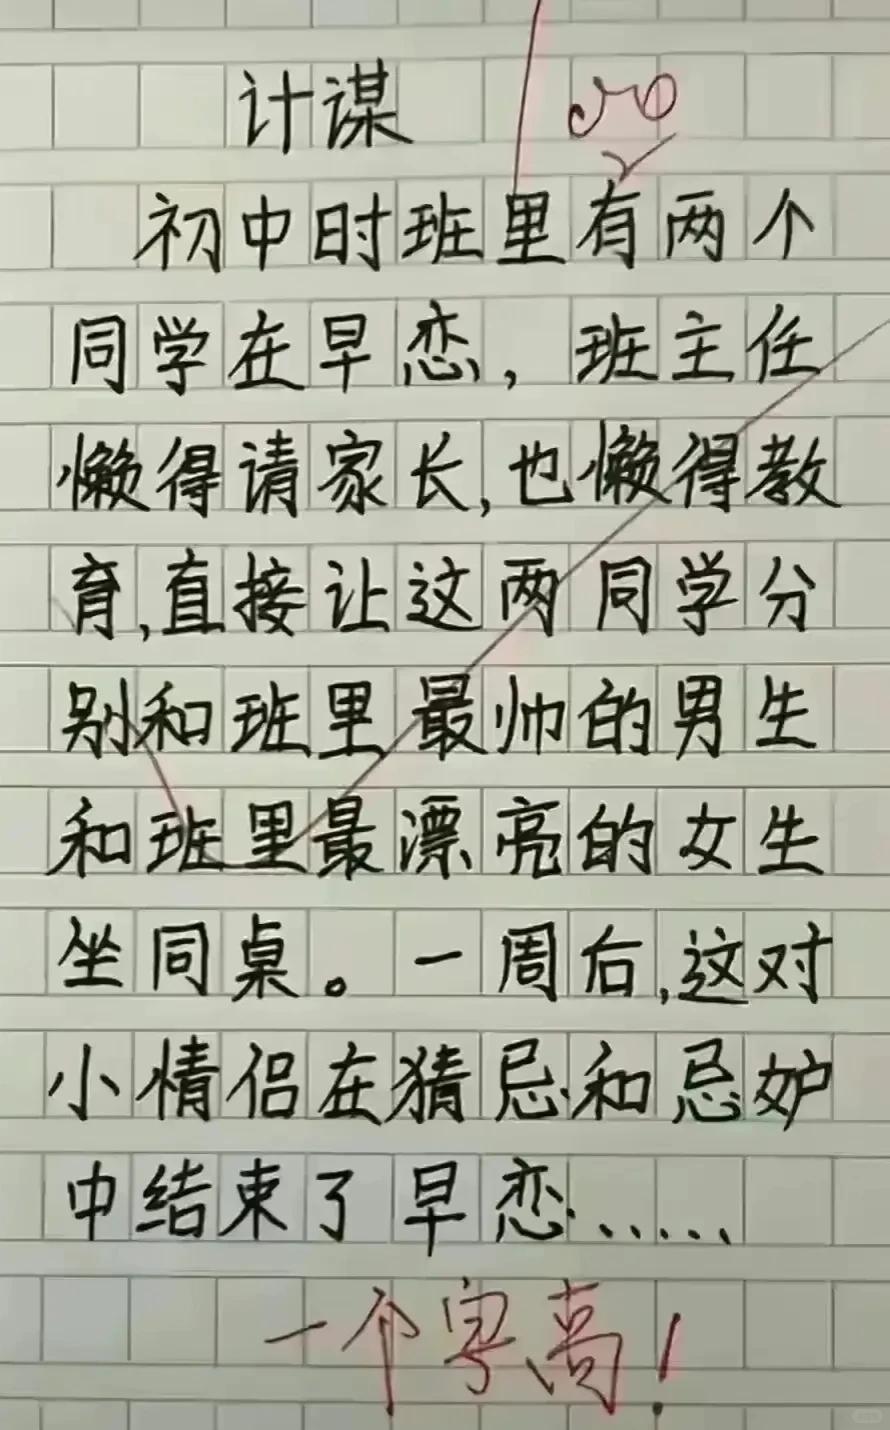 计谋
初中时班里有两个
同学在早恋，班主任
懒得请家长，也懒得教
育，直接让这两同学分
别和班里最帅的男生
和班里最漂亮的女生
坐同桌。一周后，这对
小情侣在猜忌和忌妒
中结束了早恋......
一个字高！